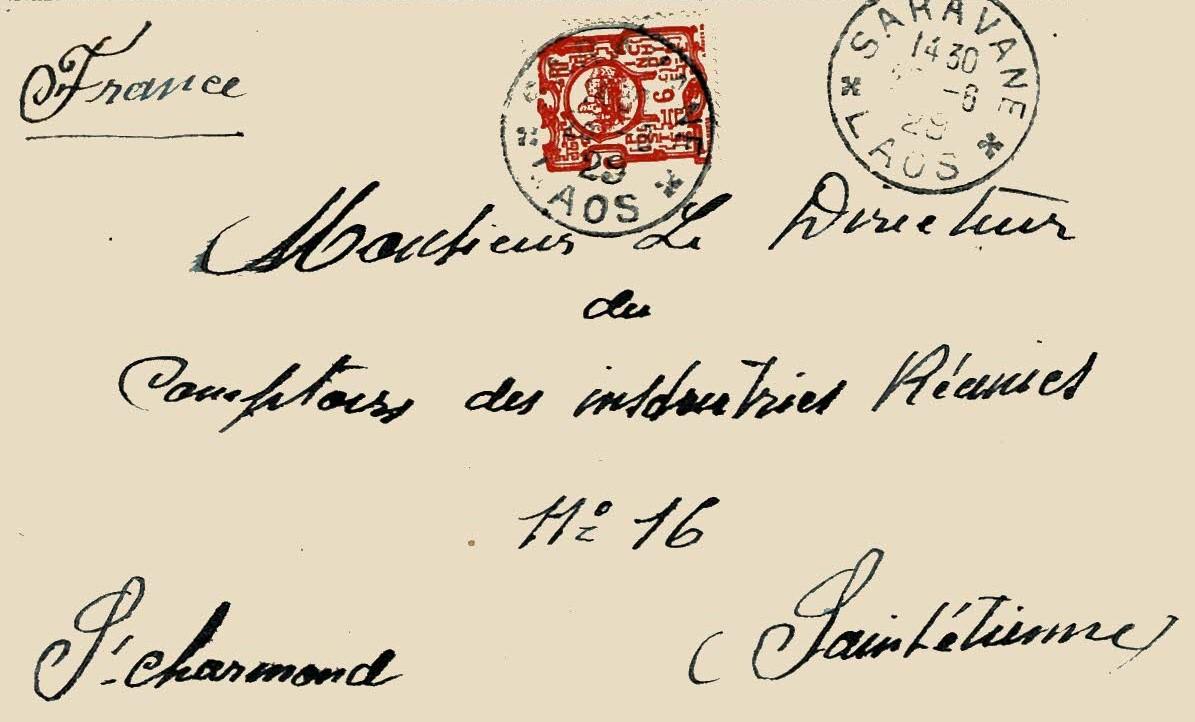 France
SARAVANE
14 30
-6
29
LAOS
29
LAOS
Monsieur Le Directeur
du
Comptoirs des insdrutries Réunies
No 16
St charmond (Saint étienne)